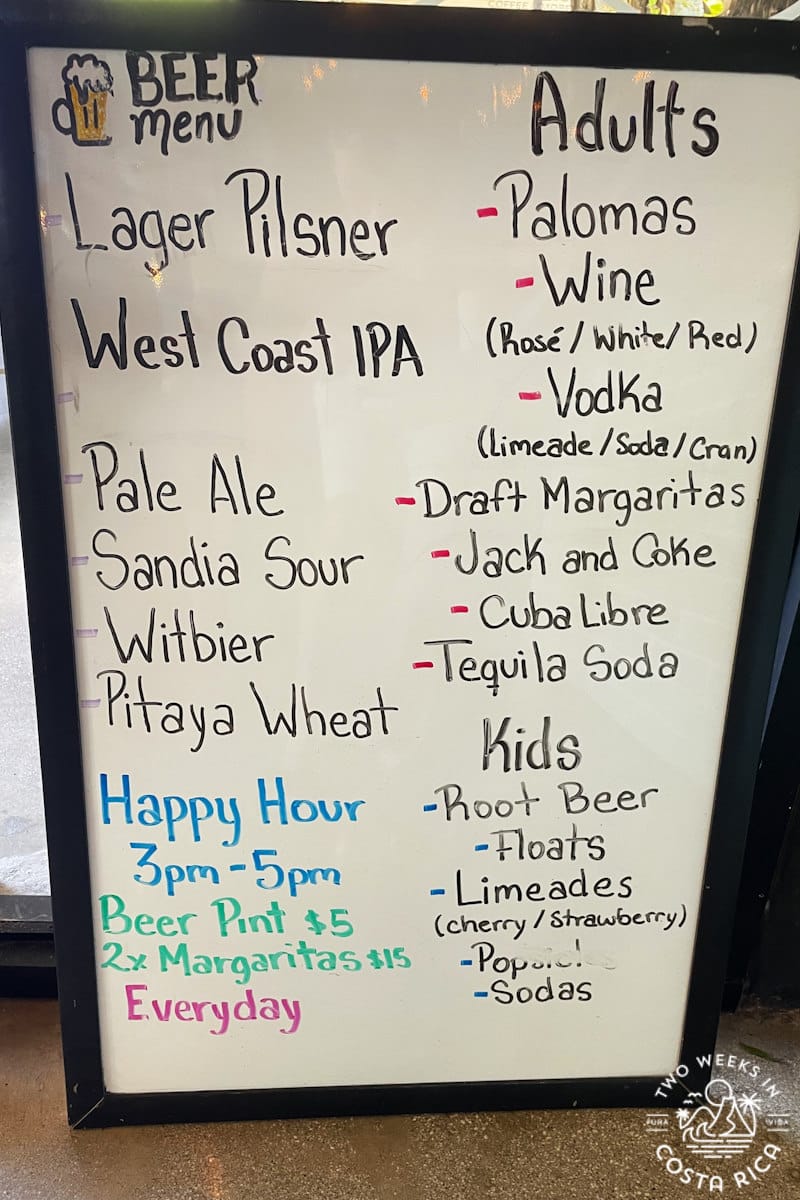 BEER
menu
Lager Pilsner
West Coast IPA
Pale Ale
Sandia Sour
Witbier
Pitaya Wheat
Happy Hour
3pm - 5pm
Beer Pint $5
2x Margaritas $15
Everyday
Adults
- Palomas
- Wine
(Rosé / White / Red)
- Vodka
(Limeade / Soda / Cran)
- Draft Margaritas
- Jack and Coke
- Cuba Libre
- Tequila Soda
Kids
- Root Beer
- Floats
- Limeades
(cherry / Strawberry)
- Sodas
TWO WEEKS IN
PURA VIDA
COSTA RICA